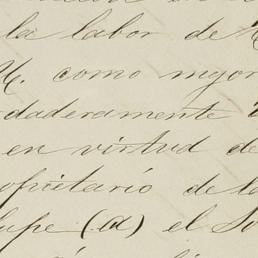 la labor de
M. como mejor
daderamente
en virtud de
opietario de la
lupe (a) el So